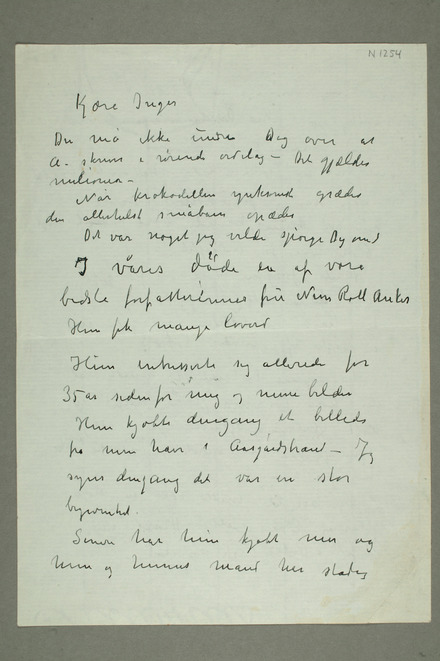 N 1254
Kjære Inger
Du må ikke undre Dig over at
A. skrives i rørende ordelag – Det gjælder
milioner –
Når krokodillen græder
den allerhelst småbarn
Det var noget jeg vilde spørge Dig om
I våres døde en af vore
bedste forfatterinner frü Nini Roll Anker
Hün fik mange lovord
Hün interesserte sig allerede for
35 år siden for mig og mine bilder
Hün kjøbte dengang et billede
fra min have i Aasgårdstrand – Jeg
synes dengang det var en stor
begivenhed.
Senere har hün kjøbt mer og
hün og hennes mand har stadig